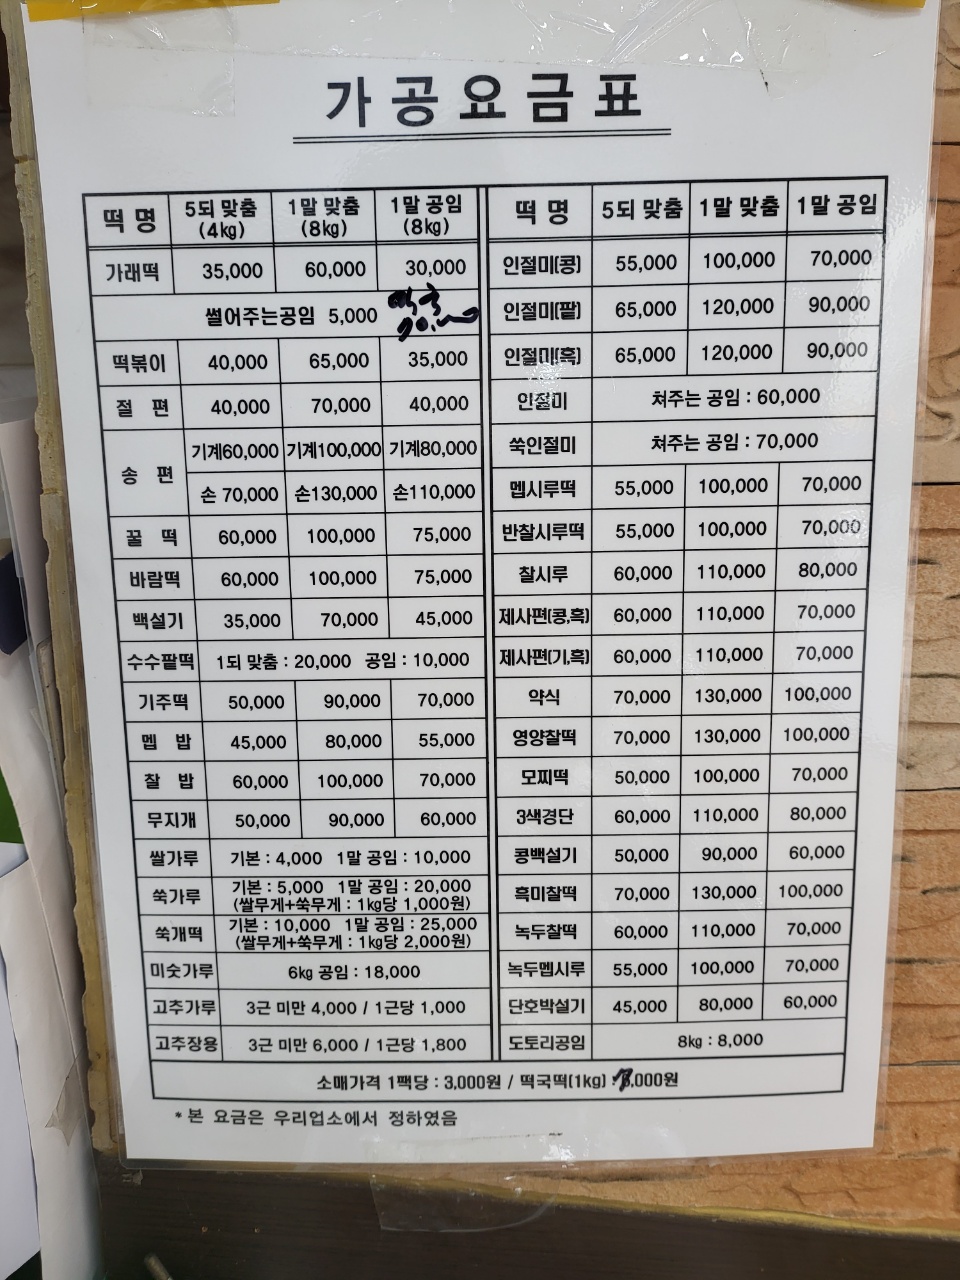 가공요금표
떡 명 5되 맞춤 (4kg) 1말 맞춤 (8kg) 1말 공임 (8kg)
가래떡 35,000 60,000 30,000
썰어주는공임 5,000 떡국
떡볶이 40,000 65,000 35,000
절 편 40,000 70,000 40,000
송 편 기계60,000 기계100,000 기계80,000
손 70,000 손130,000 손110,000
꿀 떡 60,000 100,000 75,000
바람떡 60,000 100,000 75,000
백설기 35,000 70,000 45,000
수수팥떡 1되 맞춤 : 20,000 공임 : 10,000
기주떡 50,000 90,000 70,000
멥 밥 45,000 80,000 55,000
찰 밥 60,000 100,000 70,000
무지개 50,000 90,000 60,000
쌀가루 기본 : 4,000 1말 공임 : 10,000
쑥가루 기본 : 5,000 1말 공임 : 20,000
(쌀무게+쑥무게 : 1kg당 1,000원)
쑥개떡 기본 : 10,000 1말 공임 : 25,000
(쌀무게+쑥무게 : 1kg당 2,000원)
미숫가루 6kg 공임 : 18,000
고추가루 3근 미만 4,000 / 1근당 1,000
고추장용 3근 미만 6,000 / 1근당 1,800
떡 명 5되 맞춤 1말 맞춤 1말 공임
인절미(콩) 55,000 100,000 70,000
인절미(팥) 65,000 120,000 90,000
인절미(흑) 65,000 120,000 90,000
인절미 쳐주는 공임 : 60,000
쑥인절미 쳐주는 공임 : 70,000
멥시루떡 55,000 100,000 70,000
반찰시루떡 55,000 100,000 70,000
찰시루 60,000 110,000 80,000
제사편(콩,흑) 60,000 110,000 70,000
제사편(기,흑) 60,000 110,000 70,000
약식 70,000 130,000 100,000
영양찰떡 70,000 130,000 100,000
모찌떡 50,000 100,000 70,000
3색경단 60,000 110,000 80,000
콩백설기 50,000 90,000 60,000
흑미찰떡 70,000 130,000 100,000
녹두찰떡 60,000 110,000 70,000
녹두멥시루 55,000 100,000 70,000
단호박설기 45,000 80,000 60,000
도토리공임 8kg : 8,000
소매가격 1팩당 : 3,000원 / 떡국떡(1kg) : 7,000원
* 본 요금은 우리업소에서 정하였음